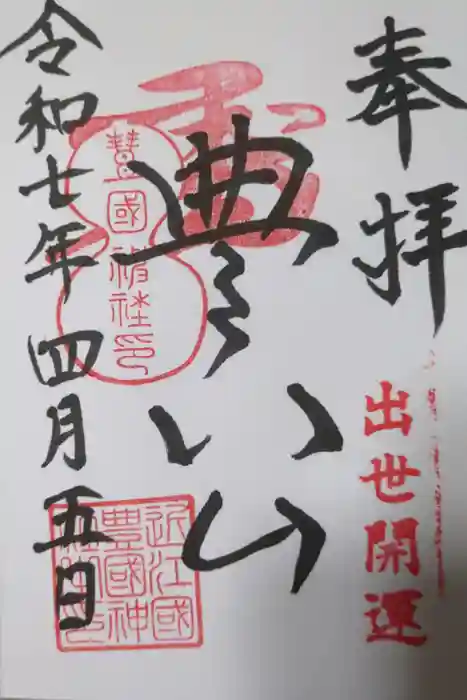 奉拝
出世開運
令和七年四月五日
豐國神社印
近江國
豊國神